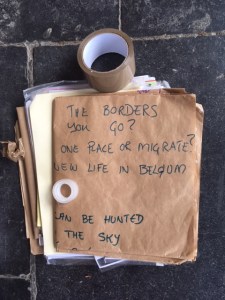 THE BORDERS
YOU GO?
ONE RACE OR MIGRATE?
NEW LIFE IN BELGIUM
AN BE HUNTED
THE SKY